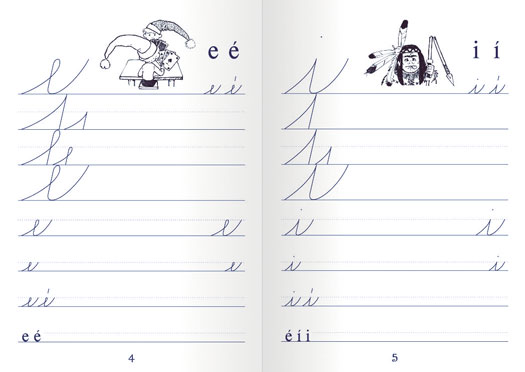 e é
e é
e e
e e
e é
e é
4
i í
i í
i i
i i
i í
é í i
5